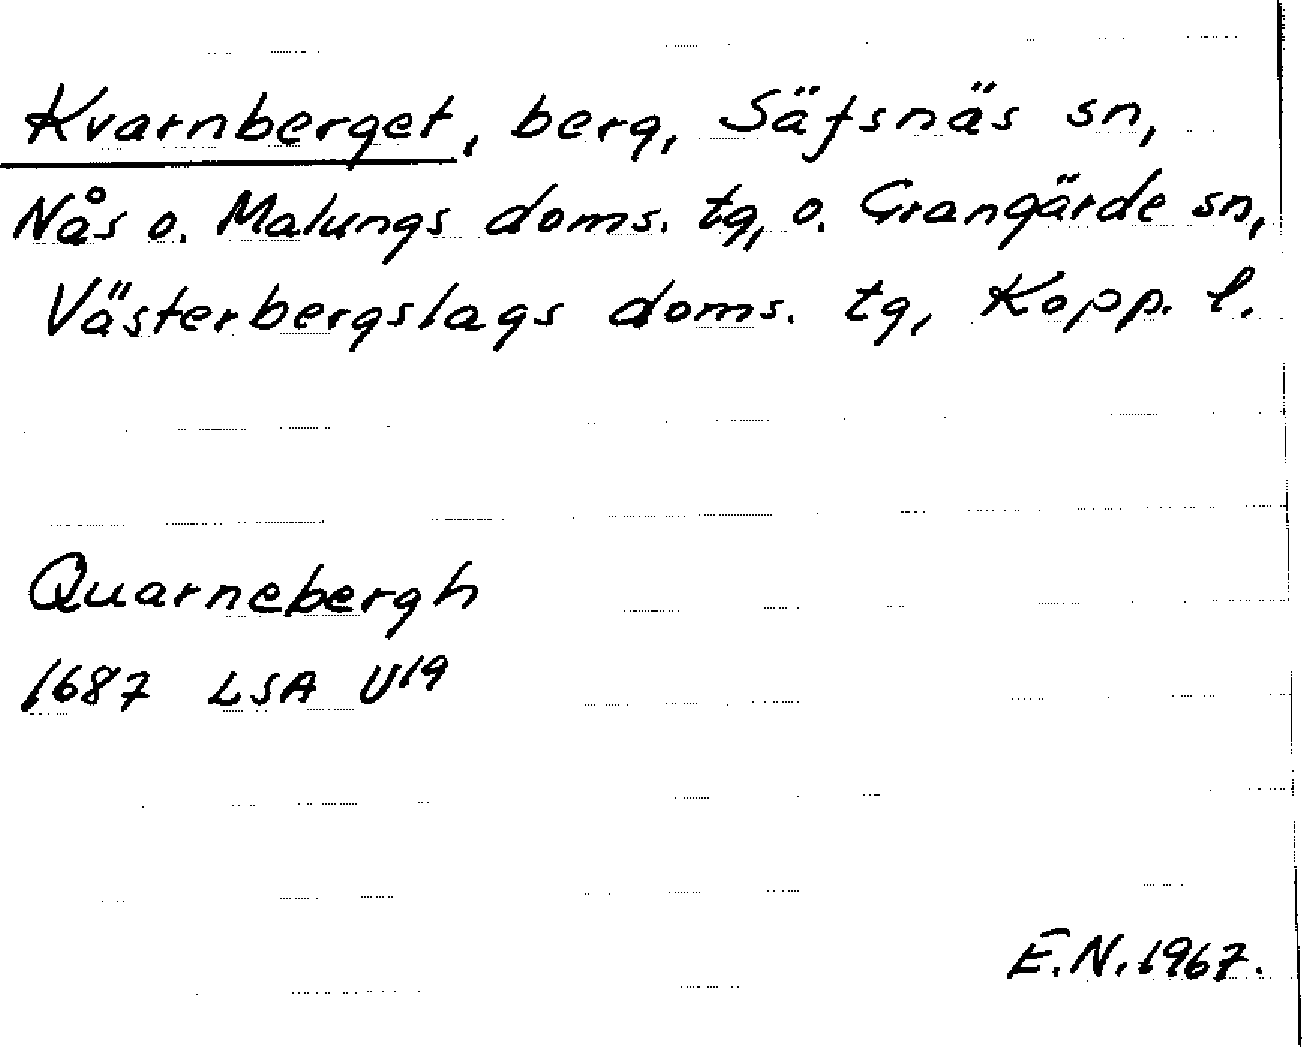 Kvarnberget, berg, Säfsnäs sn,
Nås o. Malungs doms. tg, o. Grangärde sn,
Västerbergslags doms. tg, Kopp. l.
Quarnebergh
1687 LSA U19
E.N. 1967.